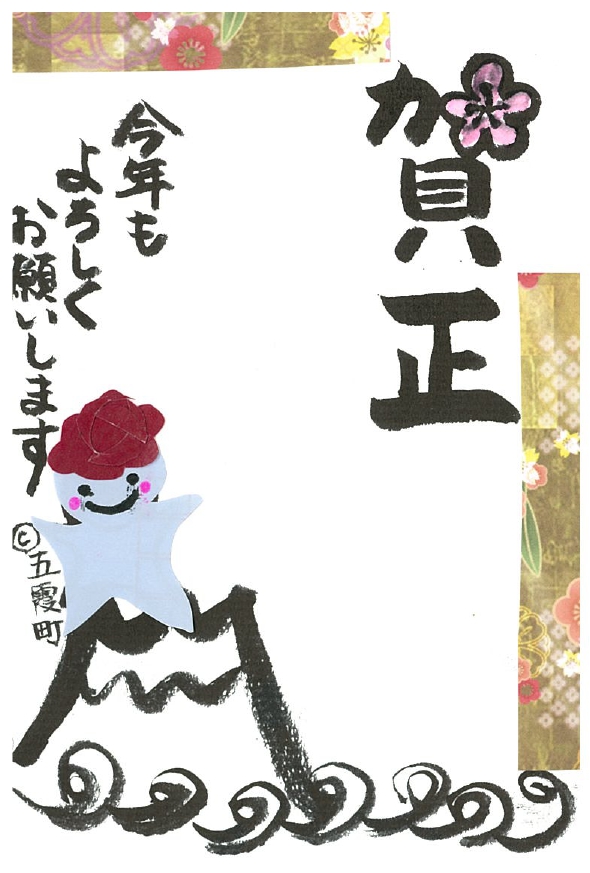 賀正
今年も
よろしく
お願いします
©五霞町